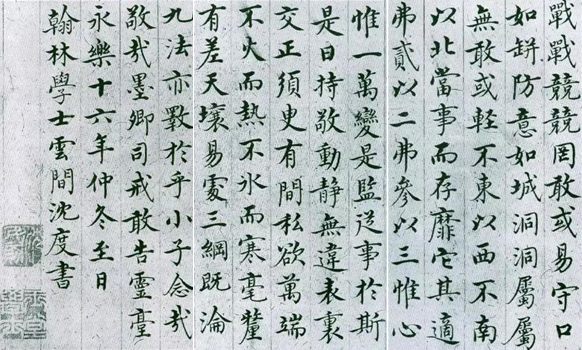 戰戰兢兢罔敢或易守口
如缾防意如城洞洞屬屬
無敢或輕不東以西不南
以北當事而存靡它其適
弗貳以二弗參以三惟心
惟一萬變是監從事於斯
是曰持敬動靜無違表裏
交正須臾有間私欲萬端
不火而熱不氷而寒毫釐
有差天壤易處三綱既淪
九法亦斁於乎小子念哉
敬哉墨卿司戒敢告靈臺
永樂十六年仲冬至日
翰林學士雲間沈度書